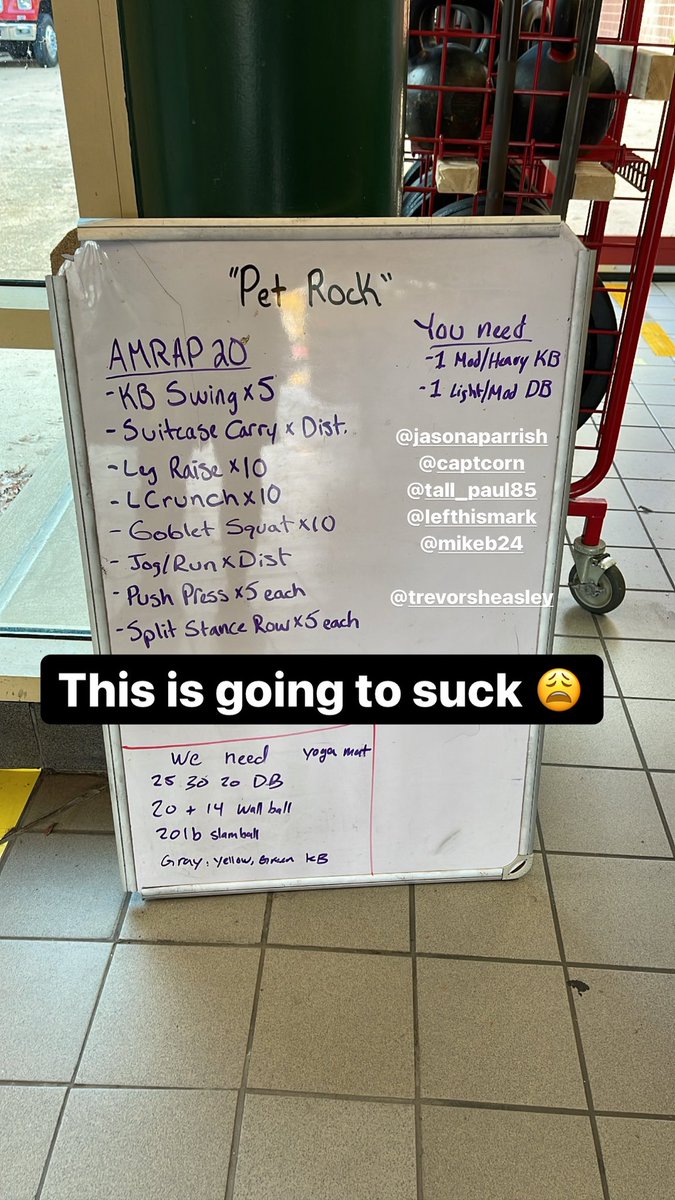 "Pet Rock"
AMRAP 20
- KB Swing x 5
- Suitcase Carry x Dist.
- Leg Raise x 10
- L Crunch x 10
- Goblet Squat x 10
- Jog/Run x Dist
- Push Press x 5 each
- Split Stance Row x 5 each
You need
- 1 Mod/Heavy KB
- 1 Light/Mod DB
@jasonaparrish
@captcorn
@tall_paul85
@lefthismark
@mikeb24
@trevorsheasley
This is going to suck 😩
We need yoga mat
25 30 20 DB
20 + 14 wall ball
20lb slamball
Gray, Yellow, Green KB